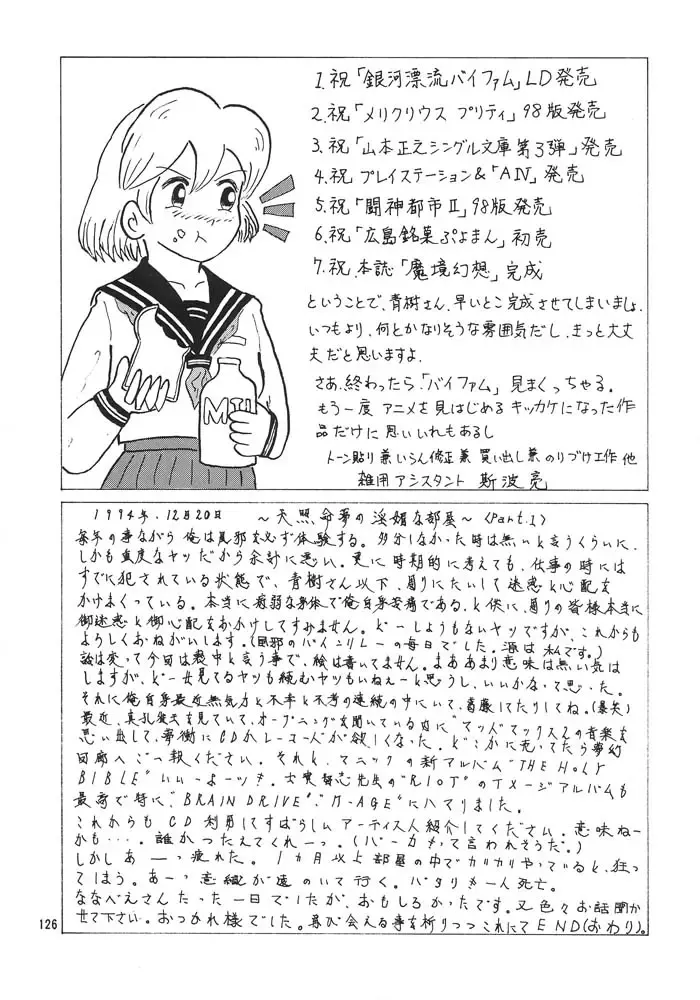 1.祝「銀河漂流バイファム」LD発売
2.祝「メリクリウス プリティ」98版発売
3.祝「山本正之シングル文庫第3弾」発売
4.祝 プレイステーション&「AⅣ」発売
5.祝「闘神都市Ⅱ」98版発売
6.祝「広島銘菓ぷよまん」初売
7.祝.本誌「魔境幻想」完成
ということで、青樹さん、早いとこ完成させてしまいましょ.
いつもより、何とかなりそうな雰囲気だし、きっと大丈
夫だと思いますよ.
さあ、終わったら「バイファム」見まくっちゃる。
もう一度アニメを見はじめるキッカケになった作
品だけに思いいれもあるし
トーン貼り兼いらん修正兼買い出し兼のりづけ工作他
雑用アシスタント 斯波亮
MIL
1994年.12月20日 〜天照命夢の淫媚な部屋〜〈Part.1〉
毎年の事ながら俺は風邪を必ず体験する。多分しなかった時は無いと言うくらいに、
しかも重度なヤツだから余計に悪い。更に時期的に考えても、仕事の時には
すでに犯されている状態で、青樹さん以下、周りにたいして迷惑と心配を
かけまくっている。本当に病弱な身体で俺自身苦痛である。と供に、周りの皆様本当に
御迷惑と御心配をおかけしてすみません。どーしようもないヤツですが、これからも
よろしくおねがいします。(風邪のバイキンリレーの毎日でした。源は私です。)
話は変って今回は喪中と言う事で、絵は書いてません。まああまり意味は無い気は
しますが、どーせ見てるヤツも読むヤツもいねぇーと思うし、いいかなって思った。
それに俺自身最近無気力と不幸と不考の連続の中にいて、葛藤してたりしてね。(爆笑)
最近、真孔雀王を見ていて、オープニングを聞いている内に"マッドマックス2の音楽を
思い出して、夢衝にCDかレコードが欲しくなった。どこかに売ってたら夢幻
回廊へご一報ください。それと、マニックの新アルバム"THE HOLY
BIBLE"いいーよーッ!。士貴智志先生の"RIOT"のイメージアルバムも
最高で特に"BRAIN DRIVE"、"M-AGE"にハマりました。
これからもCD利男にすばらしいアーティスト紹介してください。意味ねー
かも…。誰かつたえてくれーっ。(バーカもって言われそうだ。)
しかしあーっ疲れた。1ヵ月以上部屋の中でカリカリやっていると、狂っ
てしまう。あーっ意織が遠のいて行く。バタリと一人死亡。
ななべえさんたった一日でしたが、おもしろかったです。又色々お話聞か
せて下さい。おつかれ様でした。再び会える事を祈りつつこれにてEND(おわり)。
126